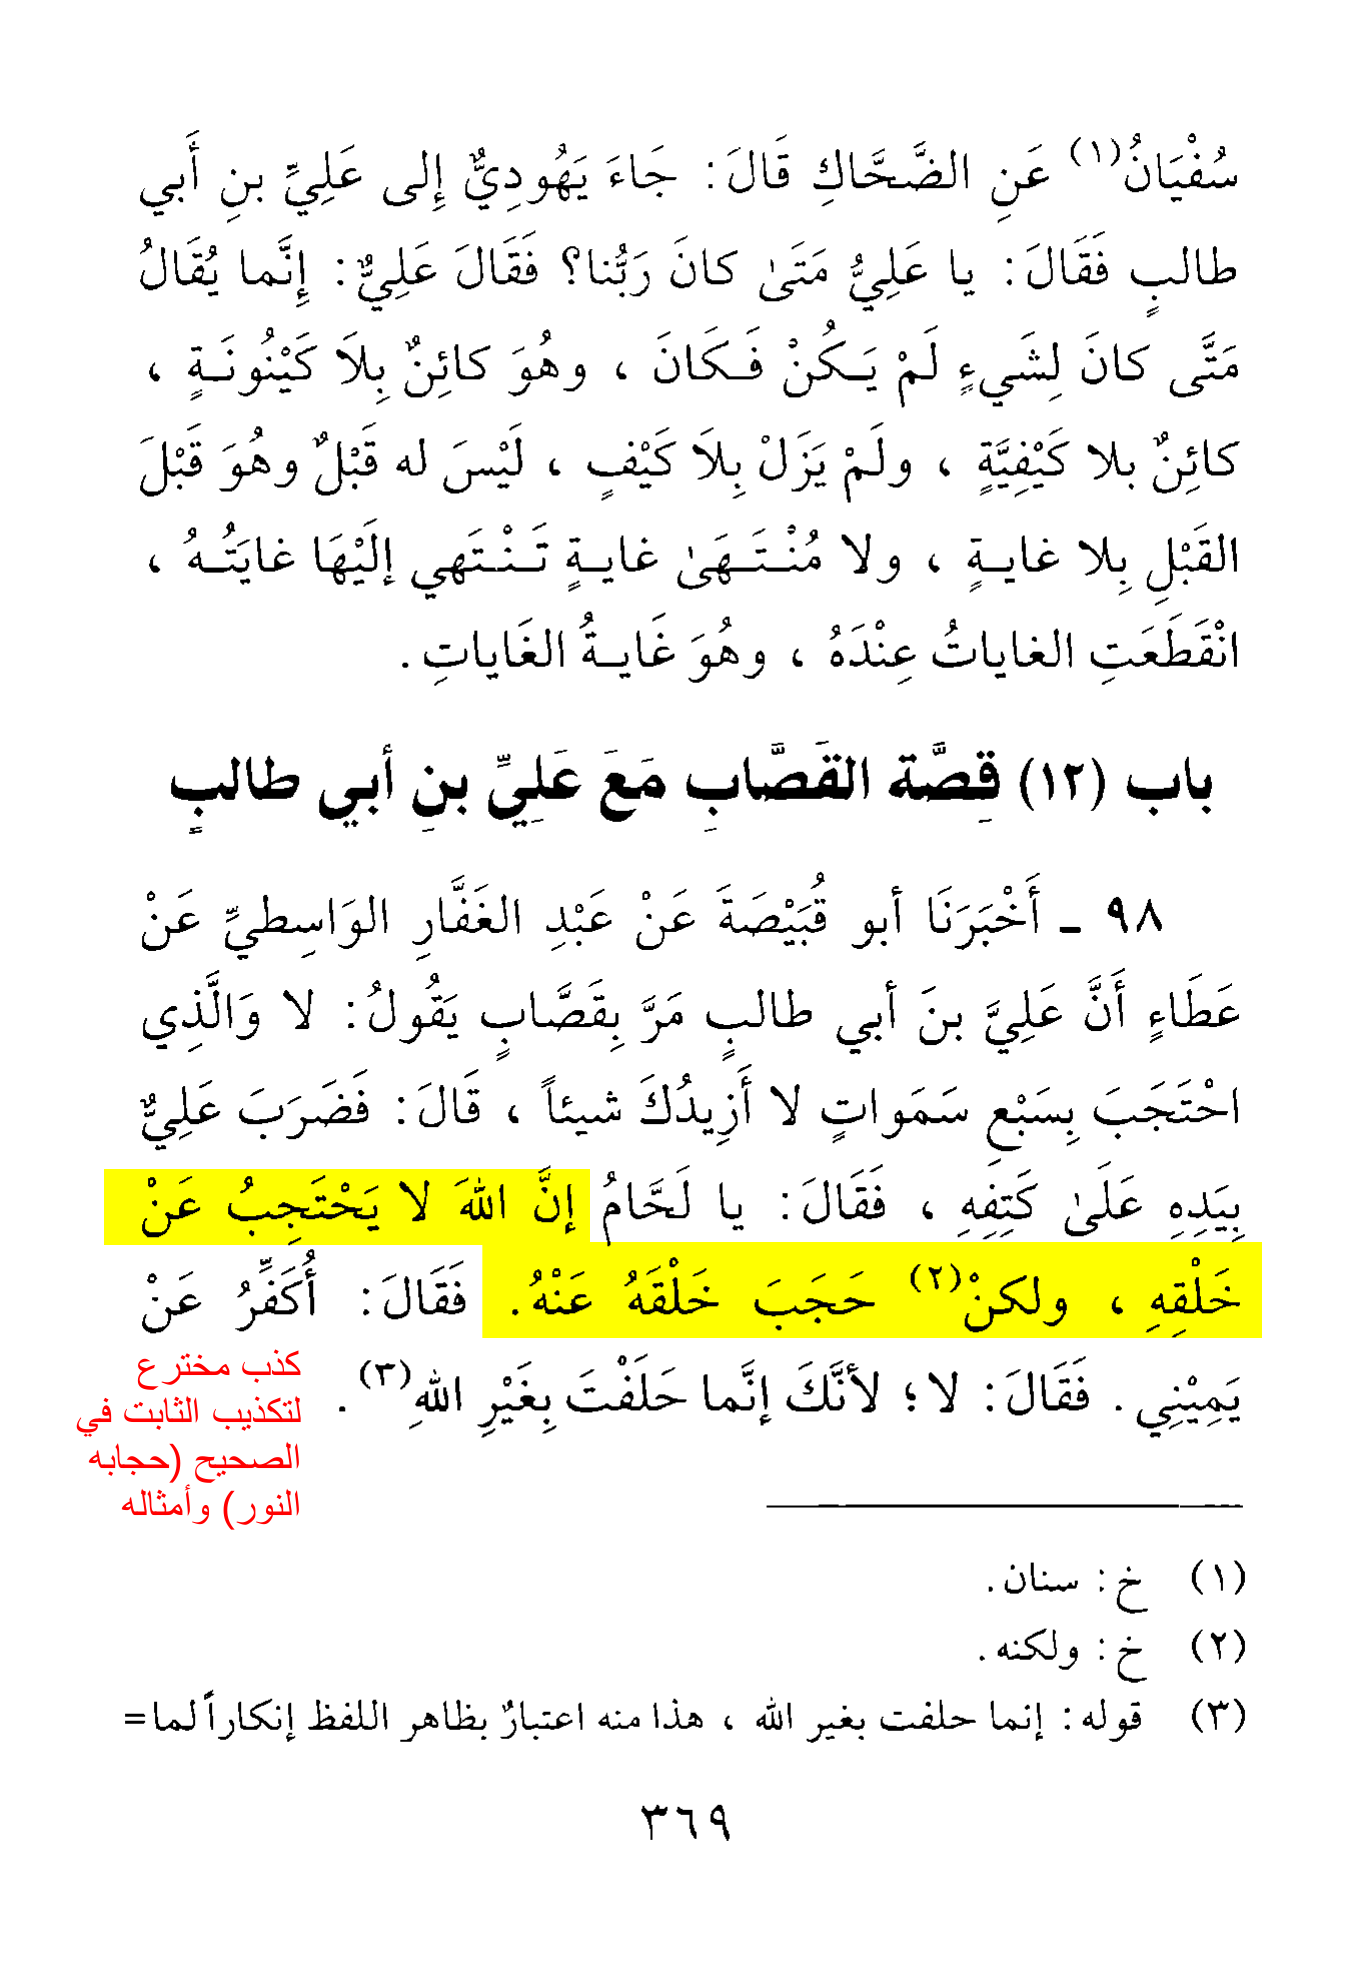 سُفْيَانُ(١) عَنِ الضَّحَّاكِ قَالَ: جَاءَ يَهُودِيٌّ إِلى عَلِيِّ بنِ أَبي
طالبٍ فَقَالَ: يا عَلِيُّ مَتَىٰ كانَ رَبُّنا؟ فَقَالَ عَلِيٌّ: إِنَّما يُقَالُ
مَتَّى كانَ لِشَيءٍ لَمْ يَـكُنْ فَـكَانَ ، وهُوَ كائِنٌ بِلاَ كَيْنُونَـةٍ ،
كائِنٌ بلا كَيْفِيَّةٍ ، ولَمْ يَزَلْ بِلاَ كَيْفٍ ، لَيْسَ له قَبْلٌ وهُوَ قَبْلَ
القَبْلِ بِلا غايـةٍ ، ولا مُنْـتَـهَىٰ غايـةٍ تَـنْـتَهي إلَيْهَا غايَتُـهُ ،
انْقَطَعَتِ الغاياتُ عِنْدَهُ ، وهُوَ غَايـةُ الغَاياتِ .
باب (١٢) قِصَّة القَصَّابِ مَعَ عَلِيِّ بنِ أبي طالبٍ
٩٨ ـ أَخْبَرَنَا أبو قُبَيْصَةَ عَنْ عَبْدِ الغَفَّارِ الوَاسِطيِّ عَنْ
عَطَاءٍ أَنَّ عَلِيَّ بنَ أبي طالبٍ مَرَّ بِقَصَّابٍ يَقُولُ: لا وَالَّذِي
احْتَجَبَ بِسَبْعِ سَمَواتٍ لا أَزِيدُكَ شيئاً ، قَالَ: فَضَرَبَ عَلِيٌّ
بِيَدِهِ عَلَىٰ كَتِفِهِ ، فَقَالَ: يا لَحَّامُ إنَّ اللهَ لا يَحْتَجِبُ عَنْ
خَلْقِهِ ، ولكنْ(٢) حَجَبَ خَلْقَهُ عَنْهُ. فَقَالَ: أُكَفِّرُ عَنْ
يَمِيْنِي . فَقَالَ: لا؛ لأنَّكَ إنَّما حَلَفْتَ بِغَيْرِ اللهِ(٣) .
كذب مخترع
لتكذيب الثابت في
الصحيح (حجابه
النور) وأمثاله
(١) خ: سنان.
(٢) خ: ولكنه.
(٣) قوله: إنما حلفت بغير الله ، هذا منه اعتبارٌ بظاهر اللفظ إنكاراً لما=
٣٦٩